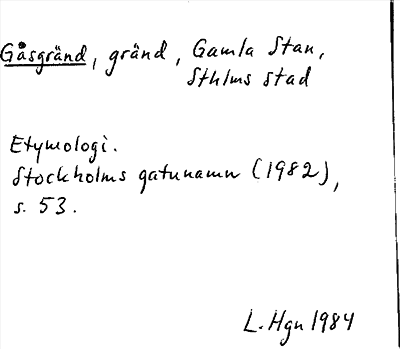 Gåsgränd, gränd, Gamla Stan,
Sthlms stad
Etymologi.
Stockholms gatunamn (1982),
s. 53.
L. Hgn 1984